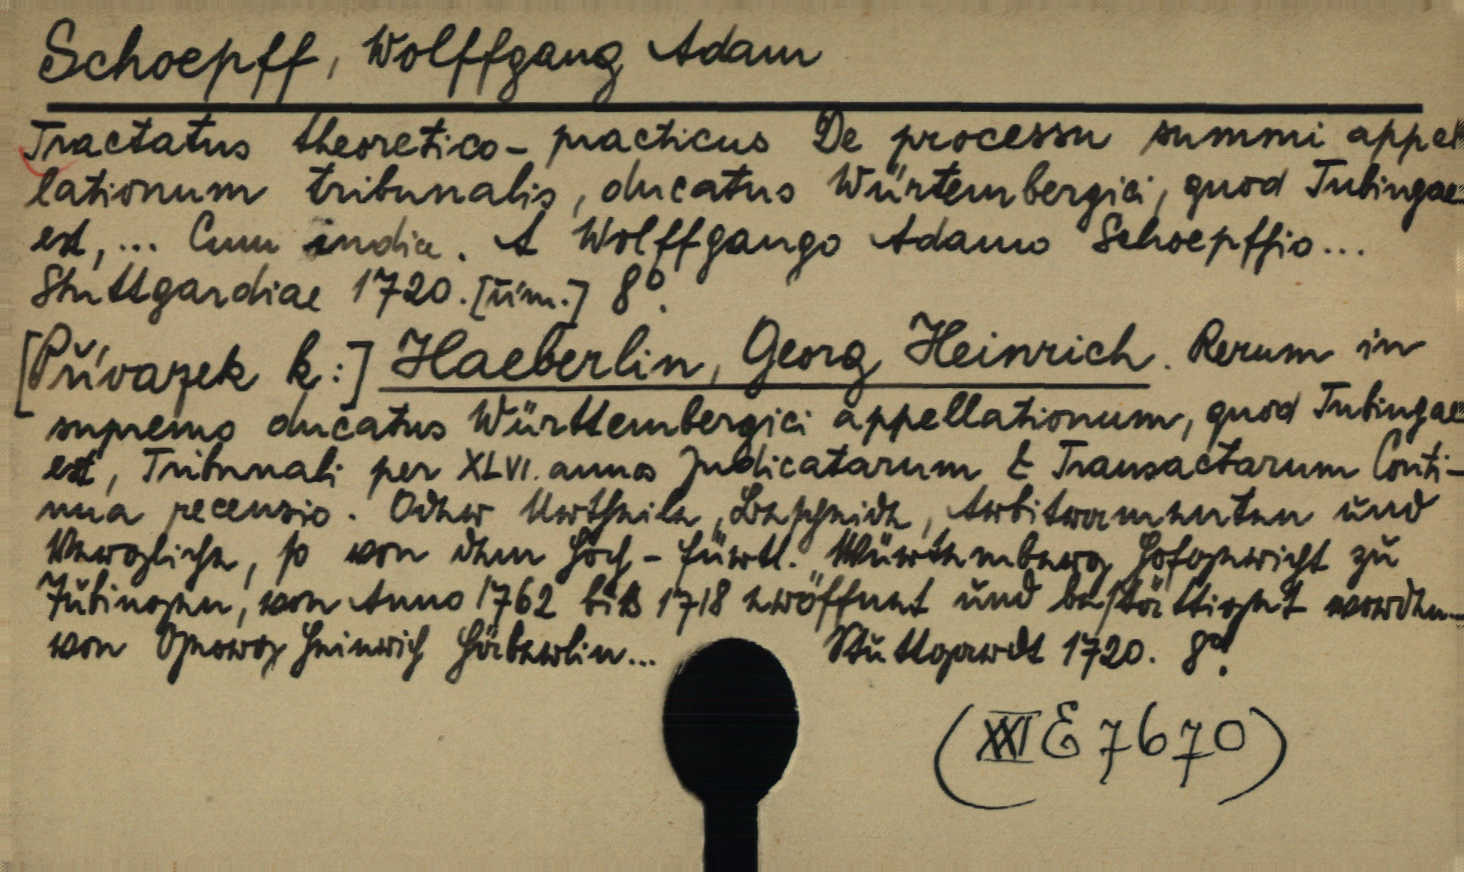 Schoepff, Wolffgang Adam
Tractatus theoretico-practicus De processu summi appel
lationum tribunalis, ducatus Würtembergici, quod Tubingae
est, ... Cum indice. A Wolffgango Adamo Schoepffio...
Stuttgardiae 1720. [rým.] 8°.
[Přívazek k:] Haeberlin, Georg Heinrich. Rerum in
supremo ducatus Württembergici appellationum, quod Tubingae
est, Tribunali per XLVI. annos Judicatarum & Transactarum Conti-
nua recensio. Oder Urtheile, Bescheide, Arbitramenten und
Vergliche, so von dem Hoch-fürstl. Würtemberg Hofgericht zu
Tübingen, von Anno 1762 biß 1718 eröffnet und bestättiget worden...
von Georg Heinrich Häberlin... Stuttgardt 1720. 8°.
(XXI E 7670)